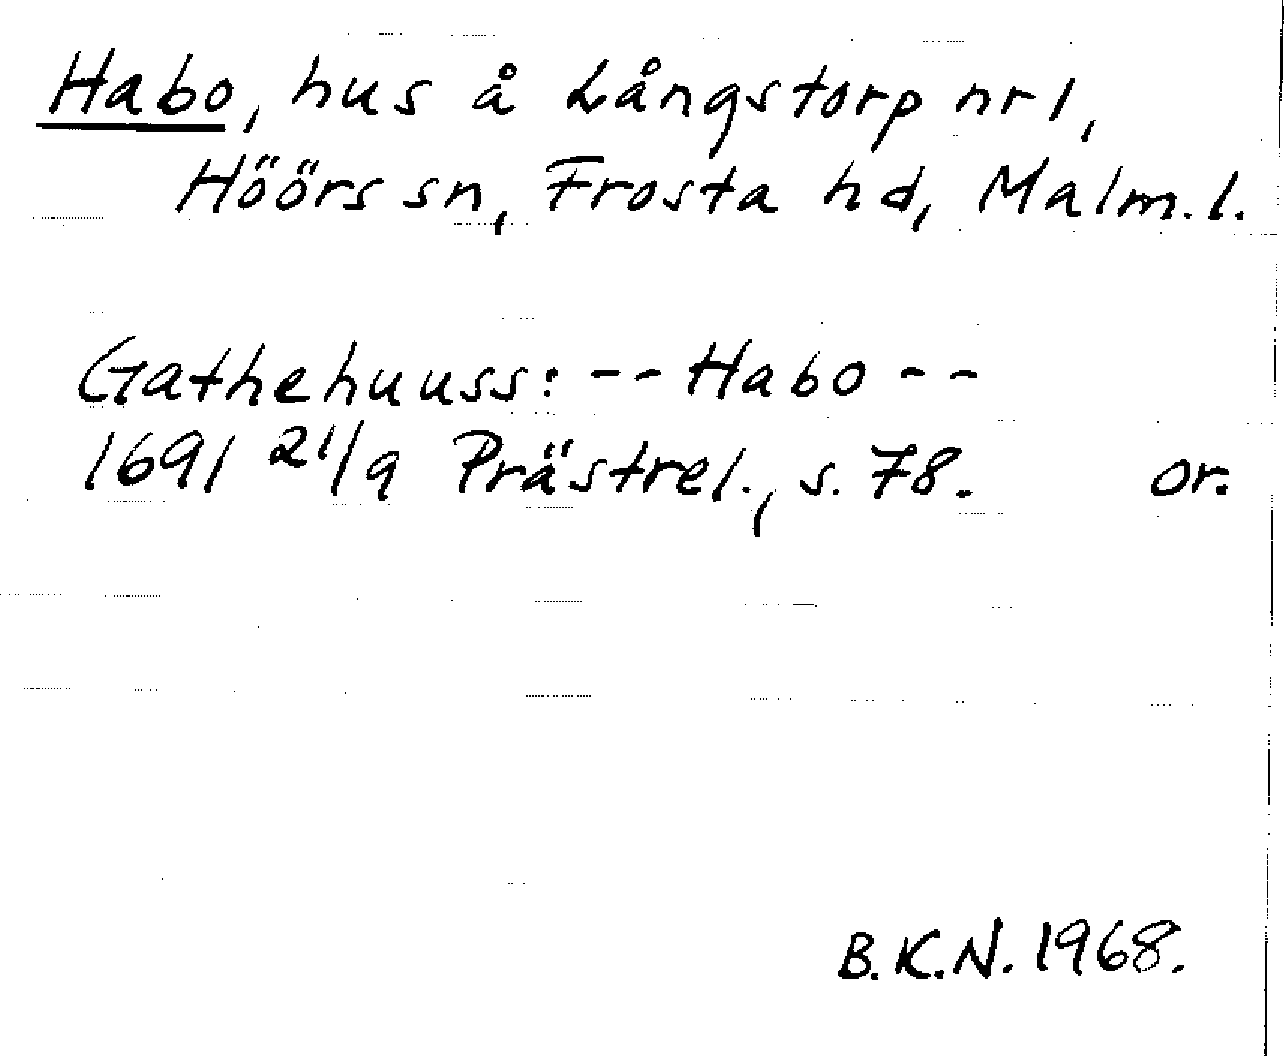 Habo, hus å Långstorp nr 1,
Höörs sn, Frosta hd, Malm. l.
Gathehuuss: -- Habo --
1691 21/9 Prästrel., s. 78. or.
B.K.N. 1968.